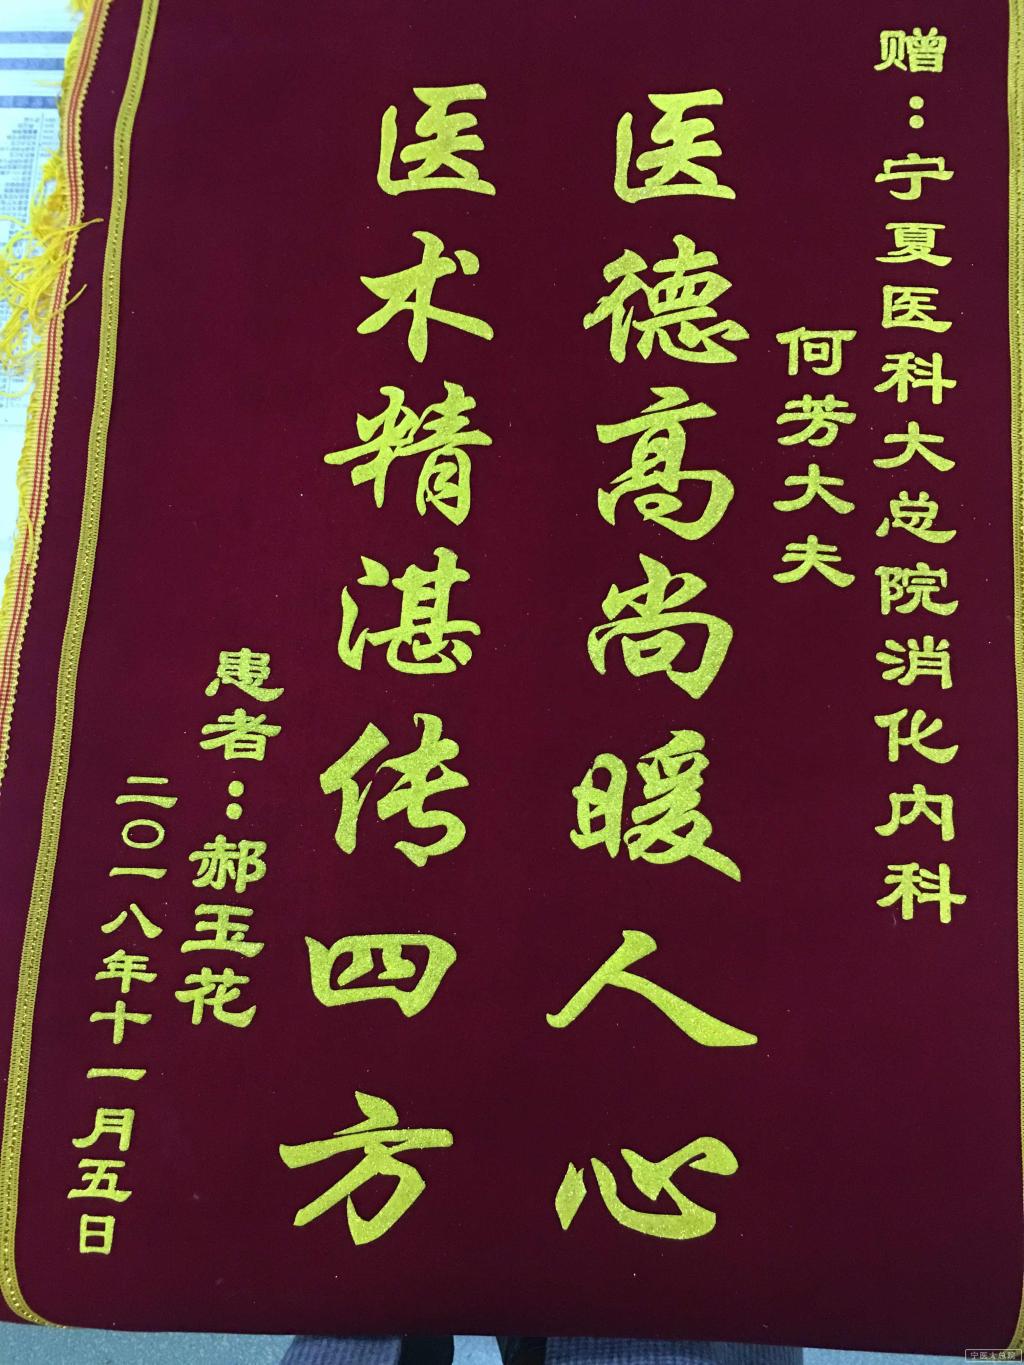 赠：宁夏医科大总院消化内科
何芳大夫
医德高尚暖人心
医术精湛传四方
患者：郝玉花
二〇一八年十一月五日
宁医大总院